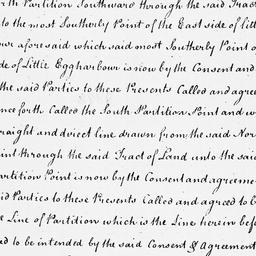 rth Partition Southward through the said Tract
to the most Southerly Point of the East side of litt
our aforesaid which said most Southerly Point o
de of Little Eggharbour is now by the Consent and
the said Parties to these Presents Called and agree
nce forth Called the South Partition Point and w
raight and direct line drawn from the said Nor
int through the said Tract of Land unto the said
artition Point is now by the Consent and agreeme
id Parties to these Presents Called and agreed to b
e Line of Partition which is the Line herein befo
ed to be intended by the said Consent & Agreement